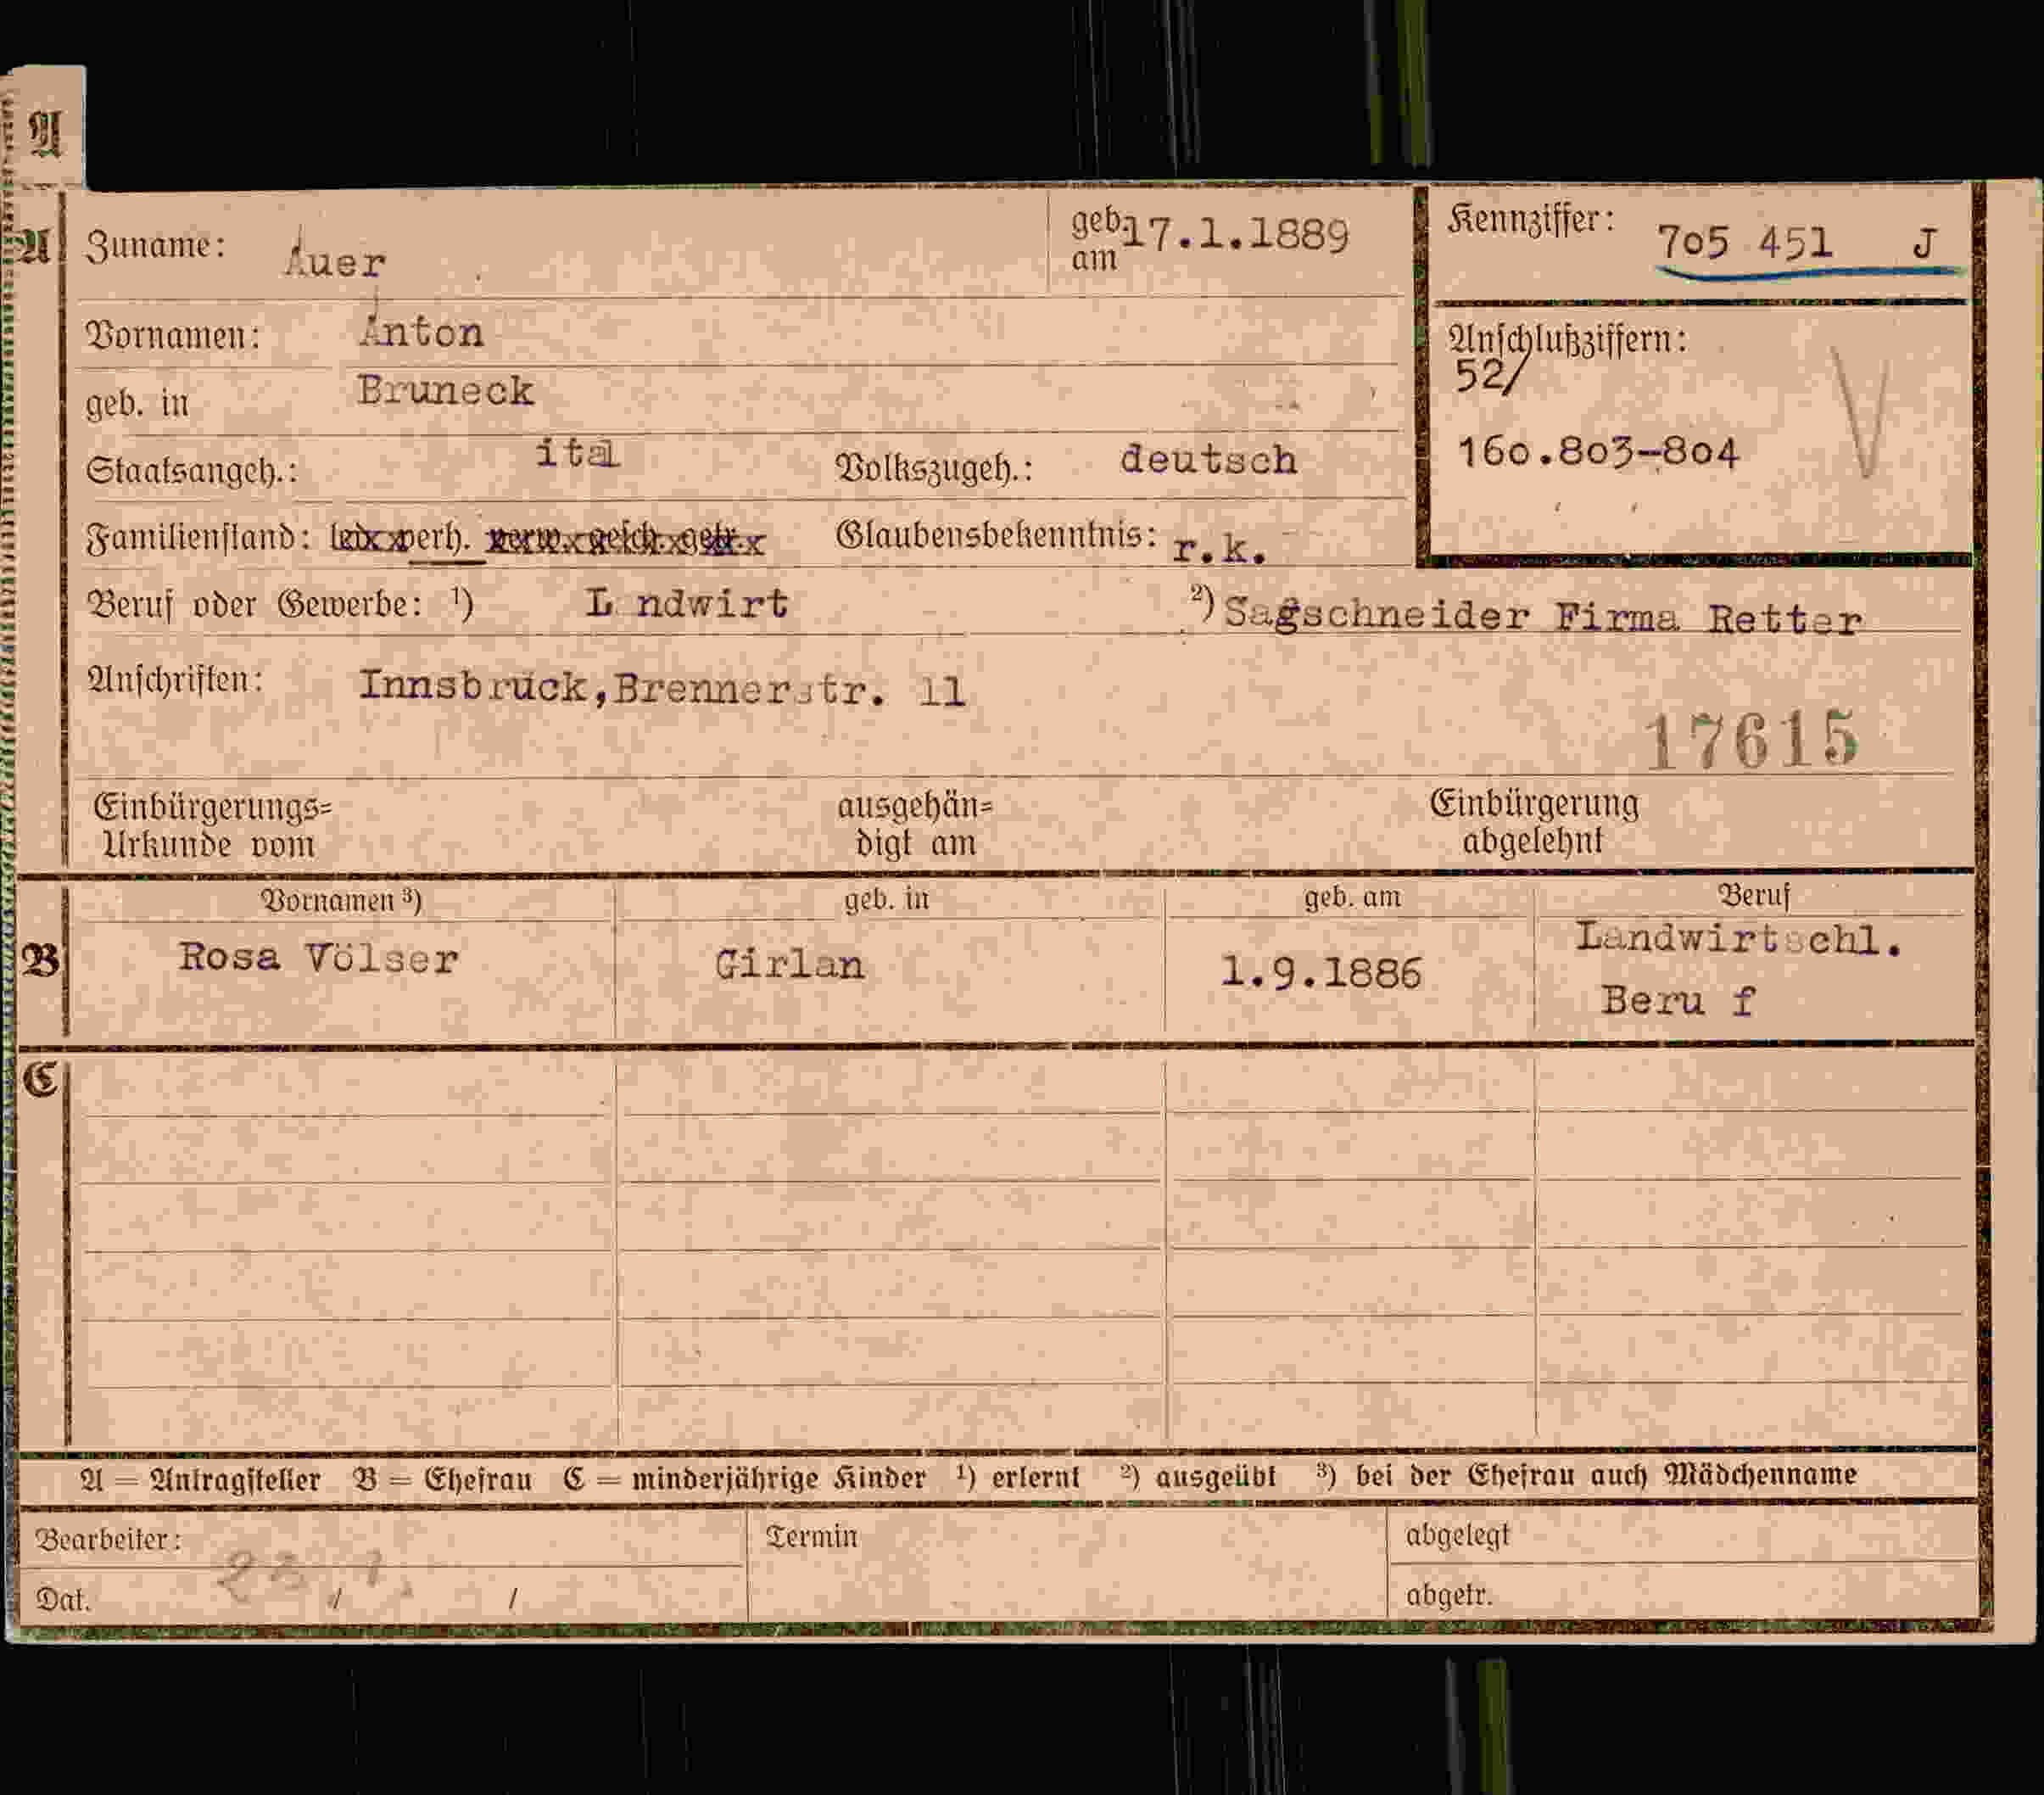 A
A Zuname: Auer geb. am 17.1.1889 Kennziffer: 705 451 J
Vornamen: Anton Anschlußziffern:
52/
geb. in Bruneck
160.803-804
Staatsangeh.: ital Volkszugeh.: deutsch
Familienstand: led. verh. verw. gesch. getr. Glaubensbekenntnis: r.k.
Beruf oder Gewerbe: ¹) L ndwirt ²) Sagschneider Firma Retter
Anschriften: Innsbruck,Brennerstr. 11
17615
Einbürgerungs= ausgehän= Einbürgerung
Urkunde vom digt am abgelehnt
Vornamen ³) geb. in geb. am Beruf
B Rosa Völser Girlan 1.9.1886 Landwirtschl.
Beru f
C
A = Antragsteller B = Ehefrau C = minderjährige Kinder ¹) erlernt ²) ausgeübt ³) bei der Ehefrau auch Mädchenname
Bearbeiter: Termin abgelegt
Dat. / / abgetr.